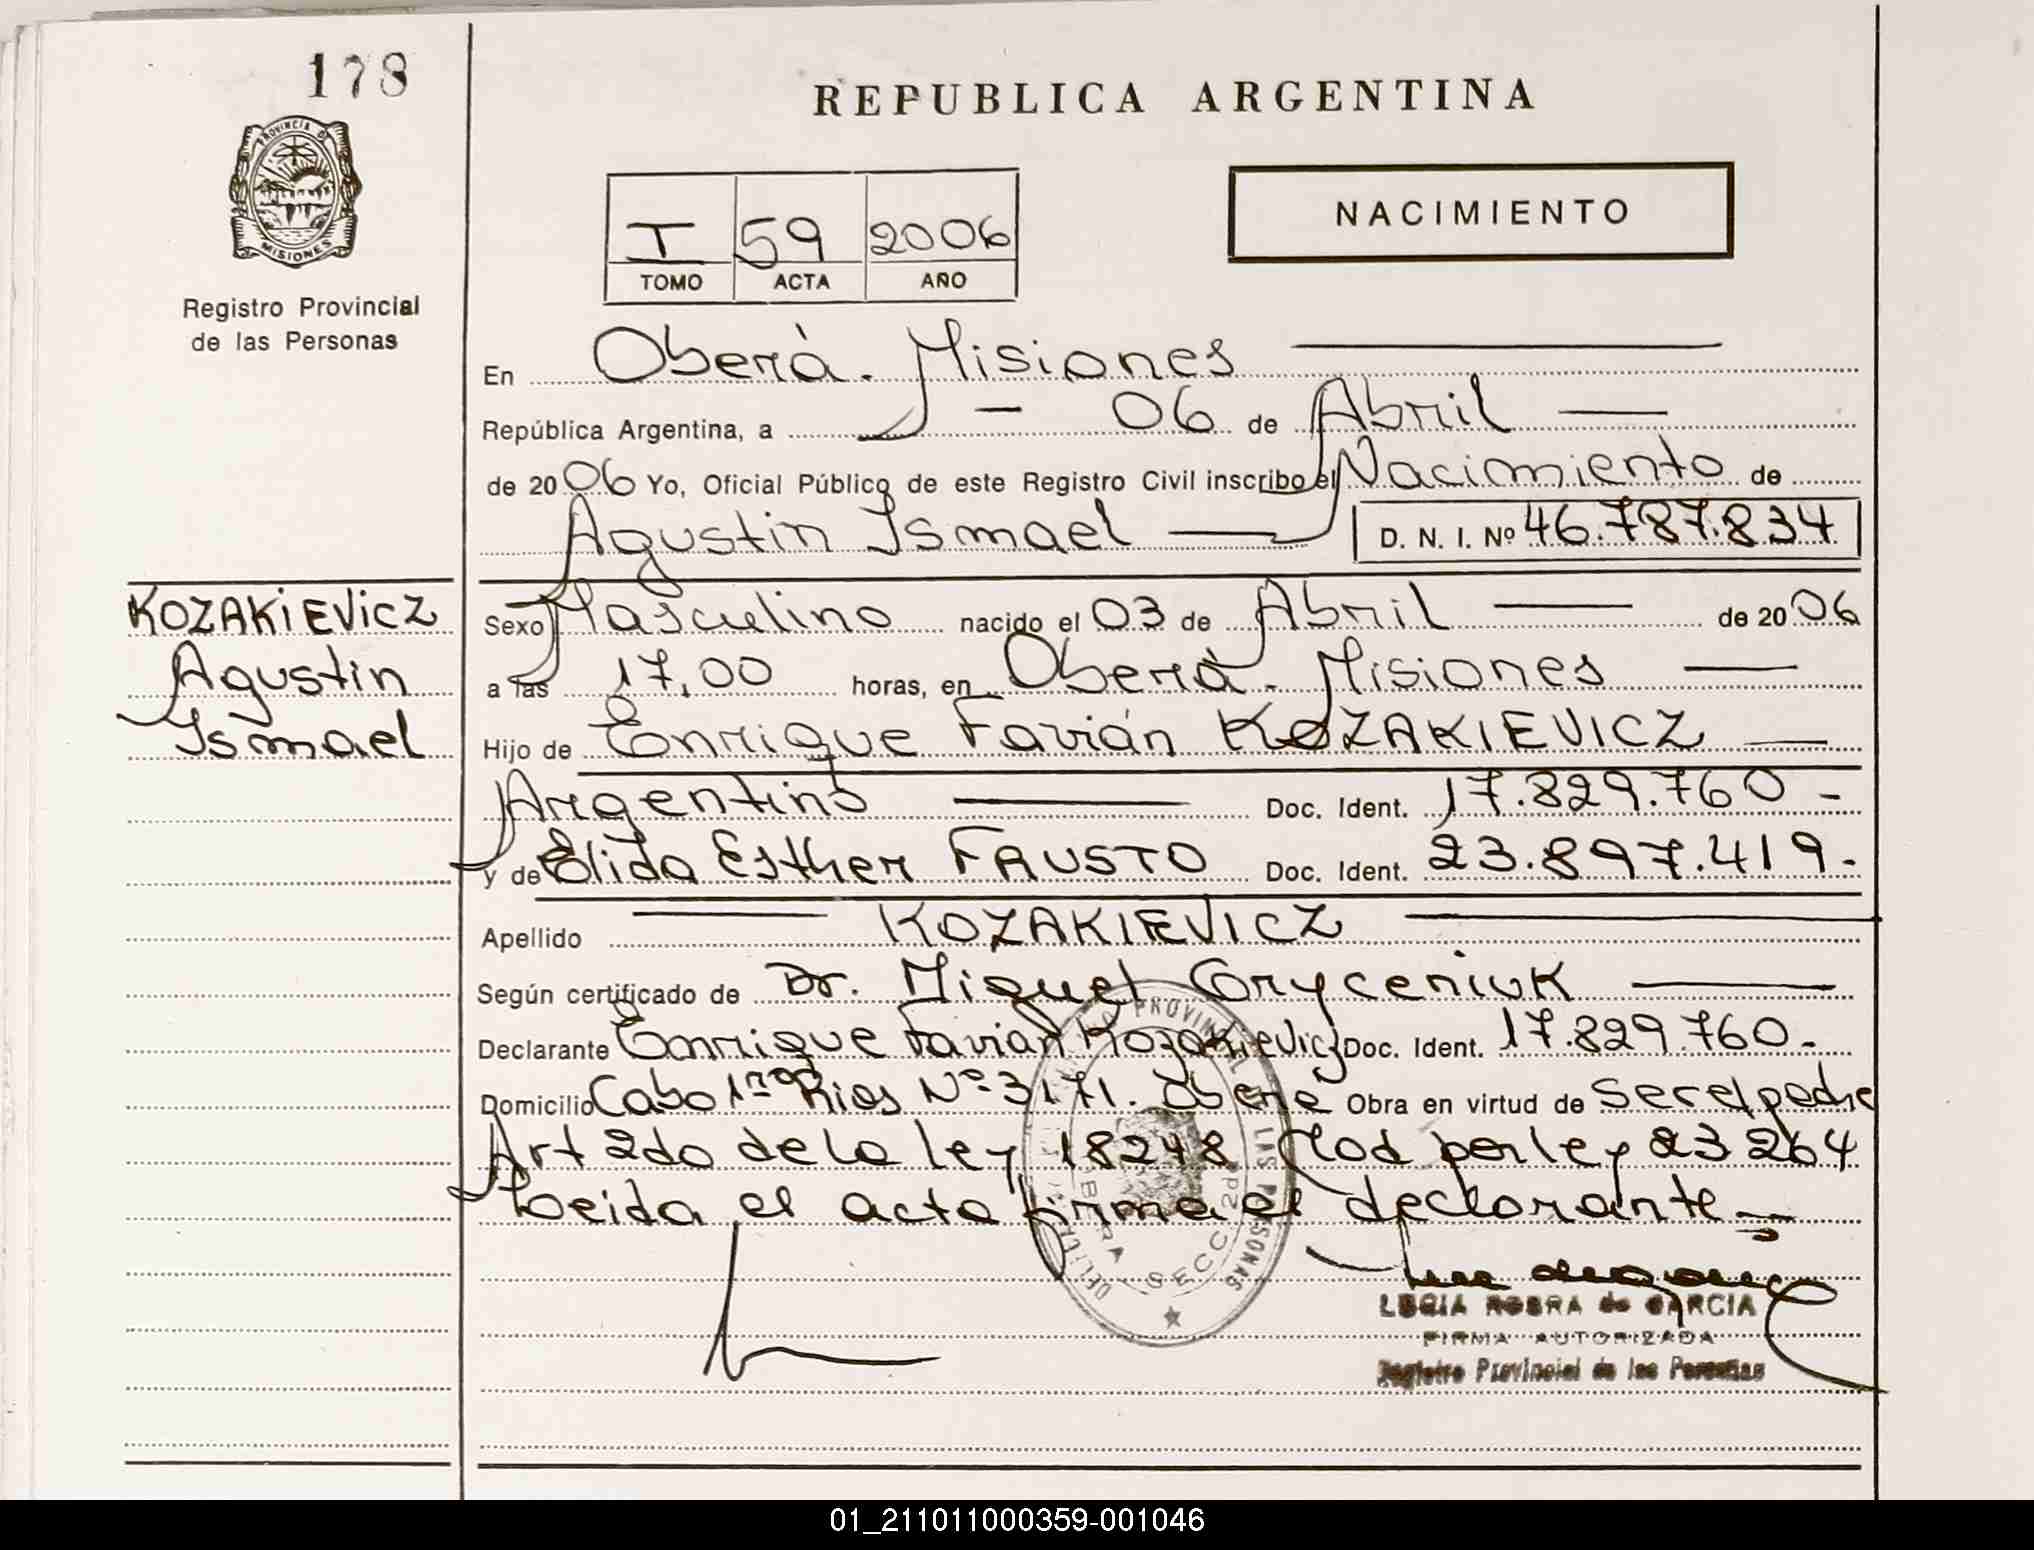 178
PROVINCIA DE
MISIONES
Registro Provincial
de las Personas
REPUBLICA ARGENTINA
I 59 2006
TOMO ACTA AÑO
NACIMIENTO
En Oberà. Misiones
República Argentina, a - 06 de Abril
de 2006 Yo, Oficial Público de este Registro Civil inscribo el Nacimiento de
Agustin Ismael D. N. I. Nº 46.787.834
KOZAKIEVICZ
Agustin
Ismael
Sexo Masculino nacido el 03 de Abril de 2006
a las 17,00 horas, en Oberà. Misiones
Hijo de Enrique Favián KOZAKIEVICZ
Argentino Doc. Ident. 17.829.760 -
y de Elida Esther FAUSTO Doc. Ident. 23.897.419 -
Apellido KOZAKIEVICZ
Según certificado de Dr. Miguel Gryceniuk
Declarante Enrique Favian Kozakievicz Doc. Ident. 17.829.760 -
Domicilio Cabo 1ro Rios Nº 3171. Oberà Obra en virtud de ser el padre
Art 2do de la ley 18248 Mod por ley 23264
Leida el acta firma el declarante
DELEGA PROVINCIAL DE LAS PERSONAS
SECC 2da
de GARCIA
FIRMA AUTORIZADA
Registro Provincial de las Personas
01_211011000359-001046